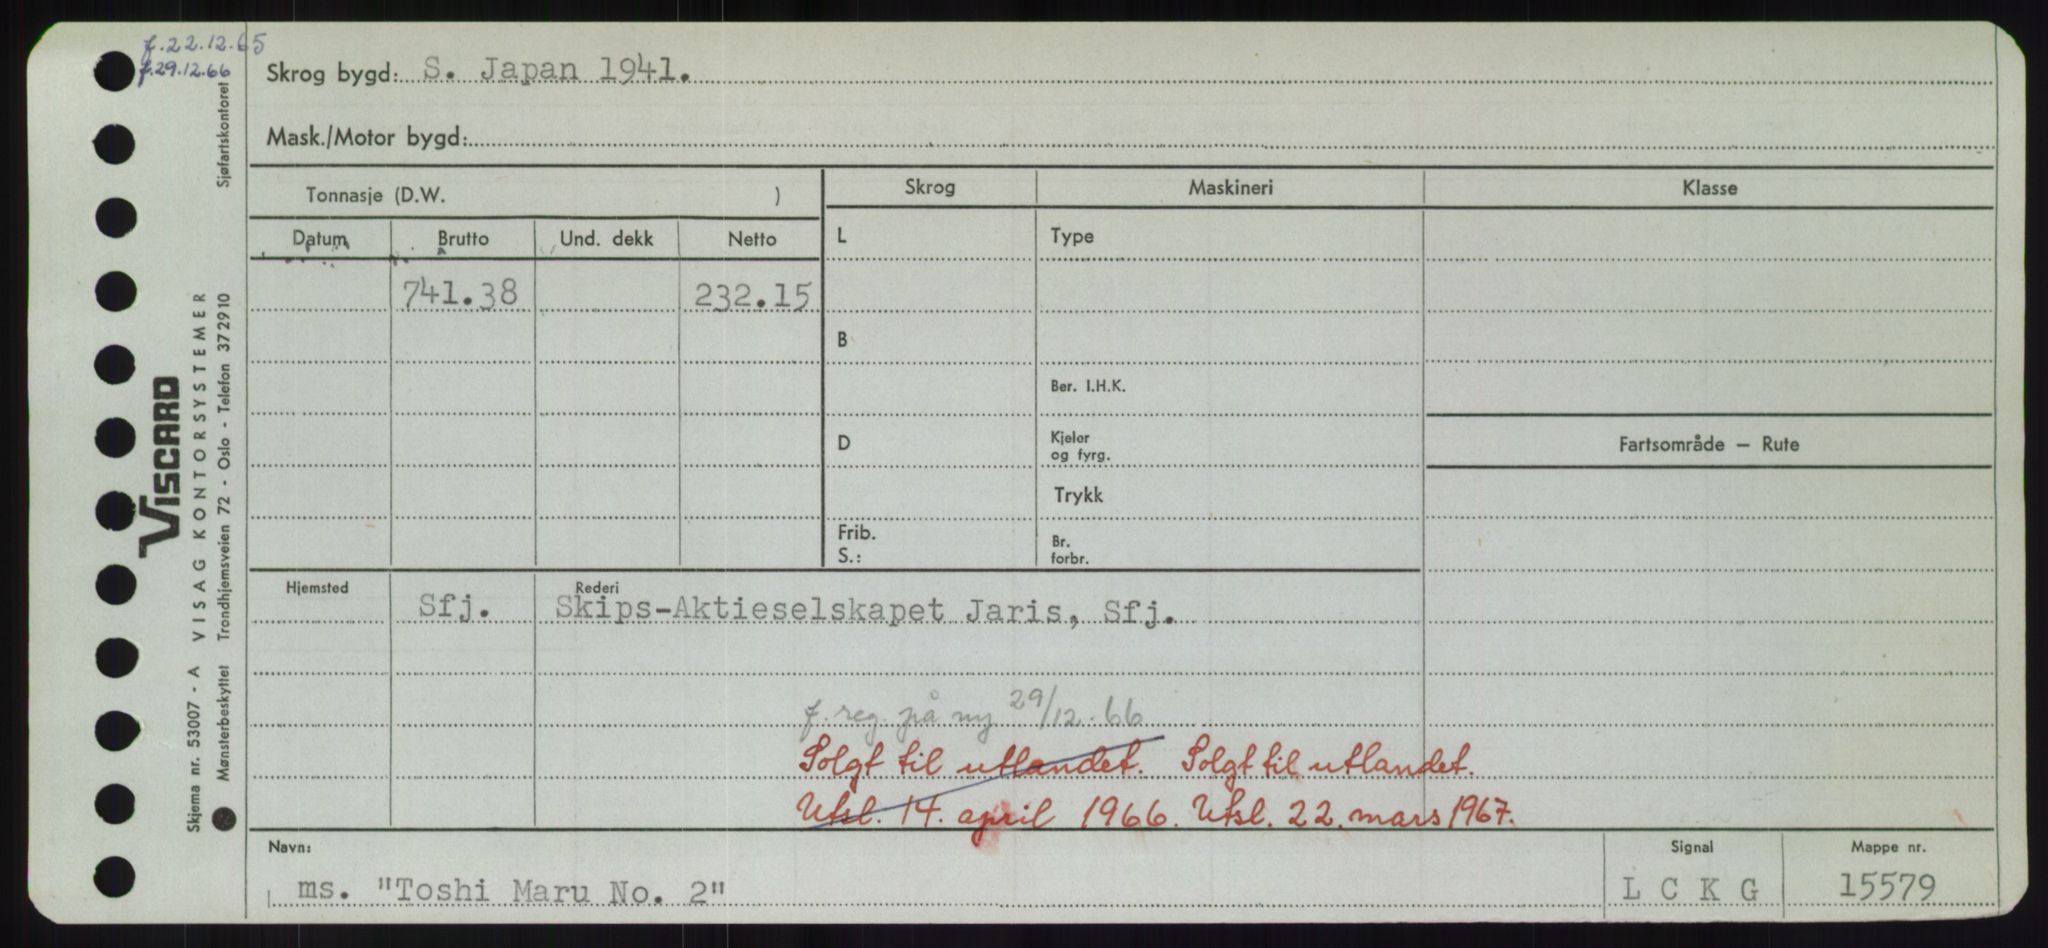 f. 22.12.65
f. 29.12.66
Skrog bygd: S. Japan 1941.
Mask./Motor bygd:
Tonnasje (D.W. )
Skrog Maskineri Klasse
Datum Brutto Und. dekk Netto
L Type
741.38 232.15
B
Ber. I.H.K.
D Kjeler og fyrg.
Fartsområde – Rute
Trykk
Frib.
S.:
Br. forbr.
Hjemsted Sfj. Rederi Skips-Aktieselskapet Jaris, Sfj.
f. reg. på ny 29/12.66
Solgt til utlandet. Solgt til utlandet.
Utsl. 14. april 1966. Utsl. 22. mars 1967.
Navn: Signal Mappe nr.
ms. "Toshi Maru No. 2" L C K G 15579
Skjema nr. 53007 - A VISAG KONTORSYSTEMER
Mønsterbeskyttet Trondhjemsveien 72 - Oslo - Telefon 372910 Sjøfartskontoret
VISCARD